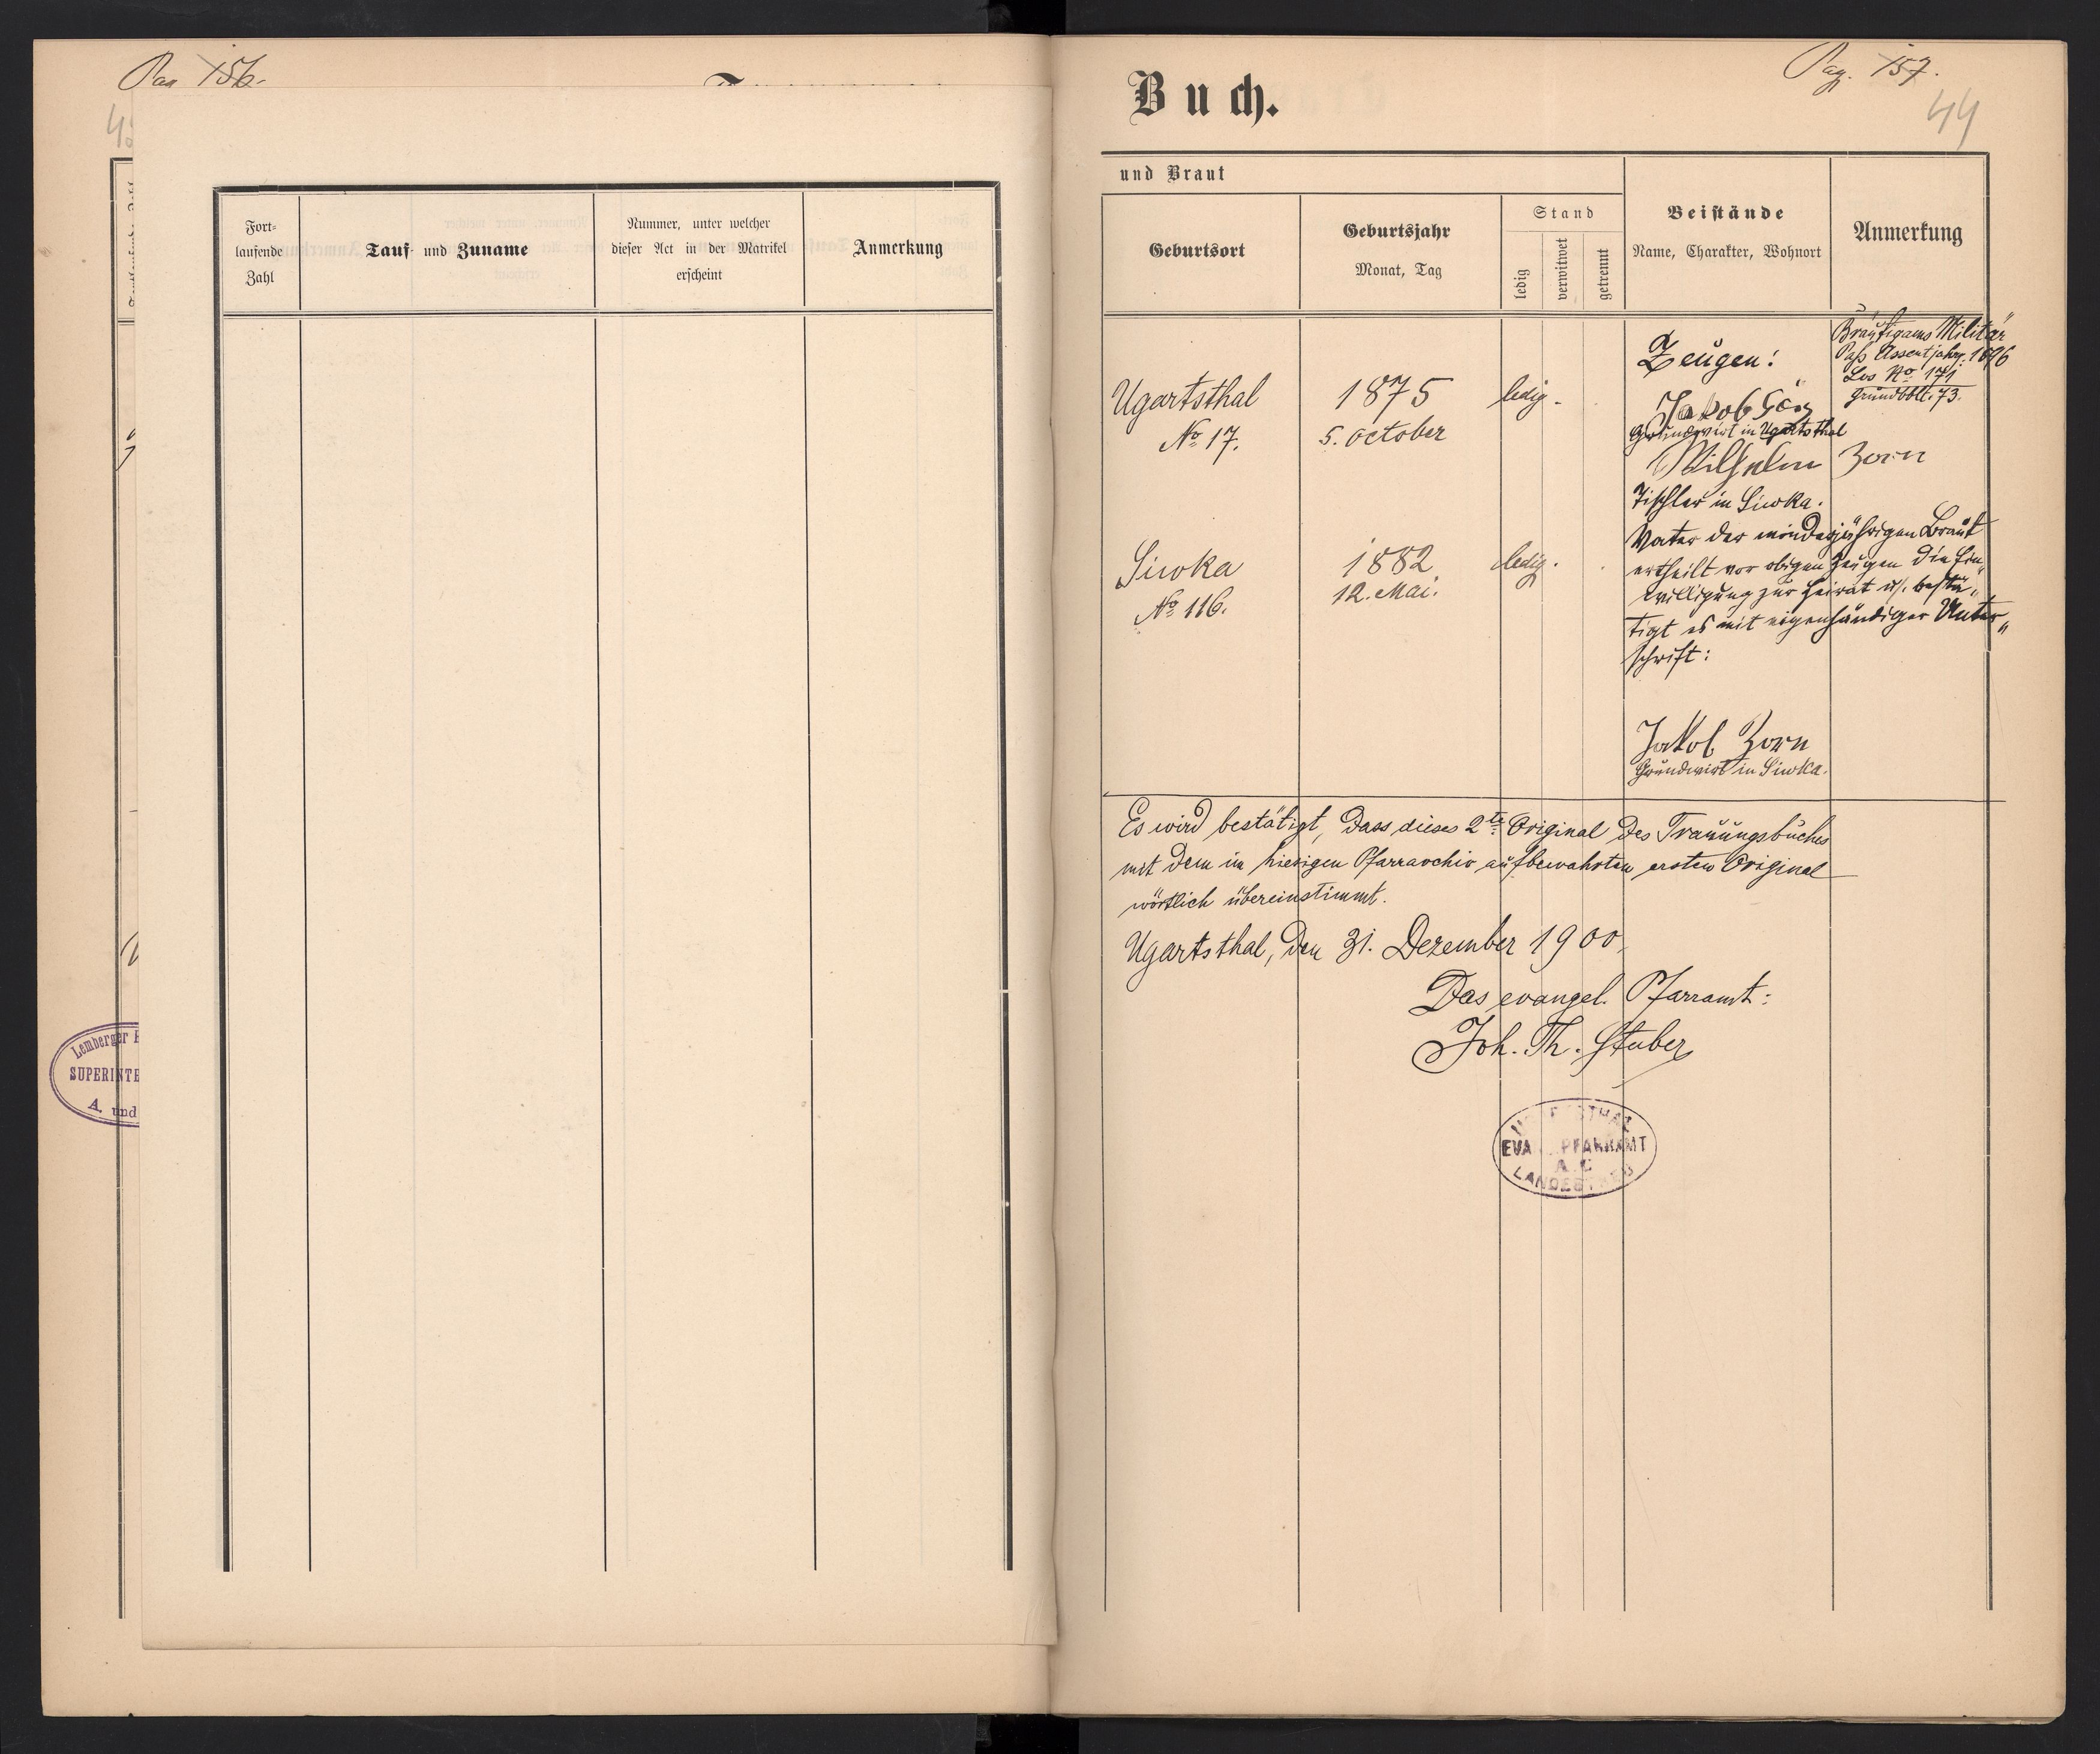 Pag 156.
4
Fort-
laufende
Zahl
Tauf- und Zuname
Nummer, unter welcher
dieser Act in der Matrikel
erscheint
Anmerkung
Lemberger
SUPERINTE
A. und
Pag. 157.
44
Buch.
und Braut
Geburtsort
Geburtsjahr
Monat, Tag
Stand
ledig
verwitwet
getrennt
Beistände
Name, Charakter, Wohnort
Anmerkung
Bräutigams Militär
Paß Assentjahr: 1896
Los No. 171
Grundbbl. 73.
Zeugen:
Ugartsthal
No. 17.
1875
5. October
ledig.
Jakob
Grundwirt in Ugartsthal
Wilhelm Zorn
Tischler in Siwka.
Siwka
No. 116.
1882
12. Mai.
ledig.
Vater der minderjährigen Braut
ertheilt vor obigen Zeugen die Ein„
willigung zur Heirat u. bestä„
tigt es mit eigenhändiger Unter„
schrift:
Jakob Zorn
Grundwirt in Siwka.
Es wird bestätigt, dass dieses 2te Original des Trauungsbuches
mit dem im hiesigen Pfarrarchiv aufbewahrten ersten Original
wörtlich übereinstimmt.
Ugartsthal, den 31. Dezember 1900.
Das evangel. Pfarramt:
Joh. Th. Stuber
EVA PFARRAMT
A. C.